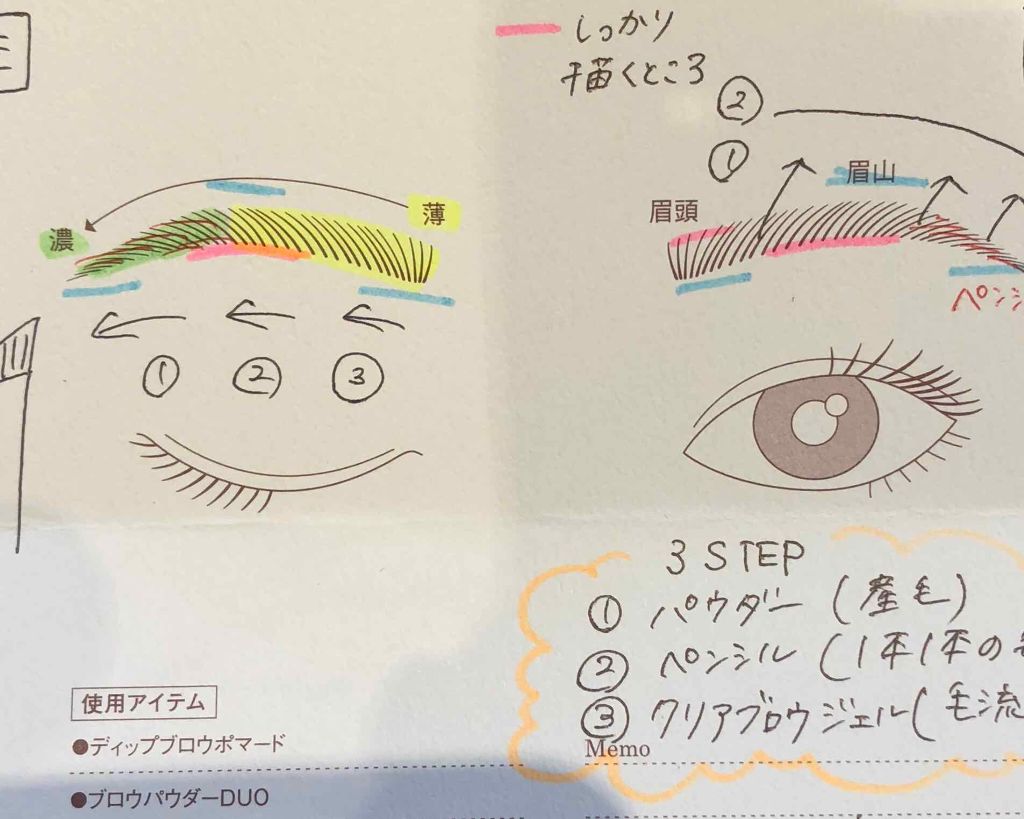 しっかり
描くところ
②
①
眉山
薄
濃
眉頭
① ② ③
3 STEP
① パウダー (産毛)
② ペンシル (1本1本の
③ クリアブロウジェル (毛流
Memo
使用アイテム
●ディップブロウポマード
●ブロウパウダーDUO